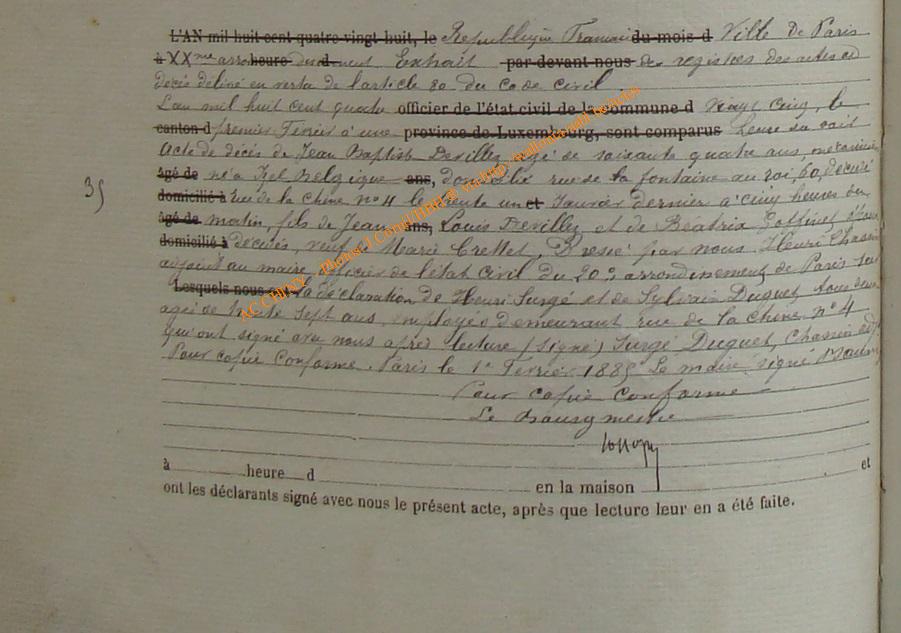 L'AN mil huit cent quatre-vingt huit, le République Française du mois d Ville De Paris
à XXme arro heure du document Extrait par-devant nous des registres des actes de
décès délivré en vertu de l'article 80 du Code civil
L'an mil huit cent quatre officier de l'état civil de la commune d Vingt Cinq, le
canton d premier Février à une province de Luxembourg, sont comparus heure du soir
Acte de décès de Jean Baptiste Devillez âgé de soixante quatre ans, mécanicien
35
âgé de né à Belgique ans, domicilié rue de la fontaine au roi, 60, décédé
domicilié à rue de la Chine n° 4 le trente un et Janvier dernier à cinq heures du
âgé de matin, fils de Jean ans, Louis Devillez et de Béatrix Goffinet
domicilié à décédés, veuf de Marie Crettet, Dressé par nous Henri Chassin
adjoint au maire officier de l'état Civil du 20e arrondissement de Paris sur
Lesquels nous ont la déclaration de Henri Surgé et de Sylvain Duguet tous deux
agés de trente sept ans, employés demeurant rue de la Chine n° 4
qui ont signé avec nous après lecture (Signé) Surgé Duguet, Chassin
Pour copie Conforme. Paris le 1er Février 1885 Le maire signé
Pour copie Conforme
Le Bourgmestre
à heure d en la maison et
ont les déclarants signé avec nous le présent acte, après que lecture leur en a été faite.
AC CHINY Photos J Cornil